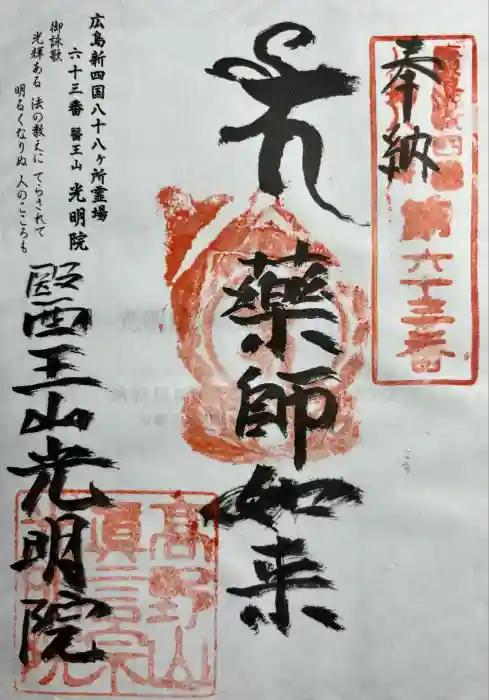 奉納
広島新四国
第六十三番
薬師如来
広島新四国八十八ヶ所霊場
六十三番 醫王山 光明院
御詠歌
光輝ある 法の教えに てらされて
明るくなりぬ 人のこころも
醫王山光明院
高野山
真言宗
光明院